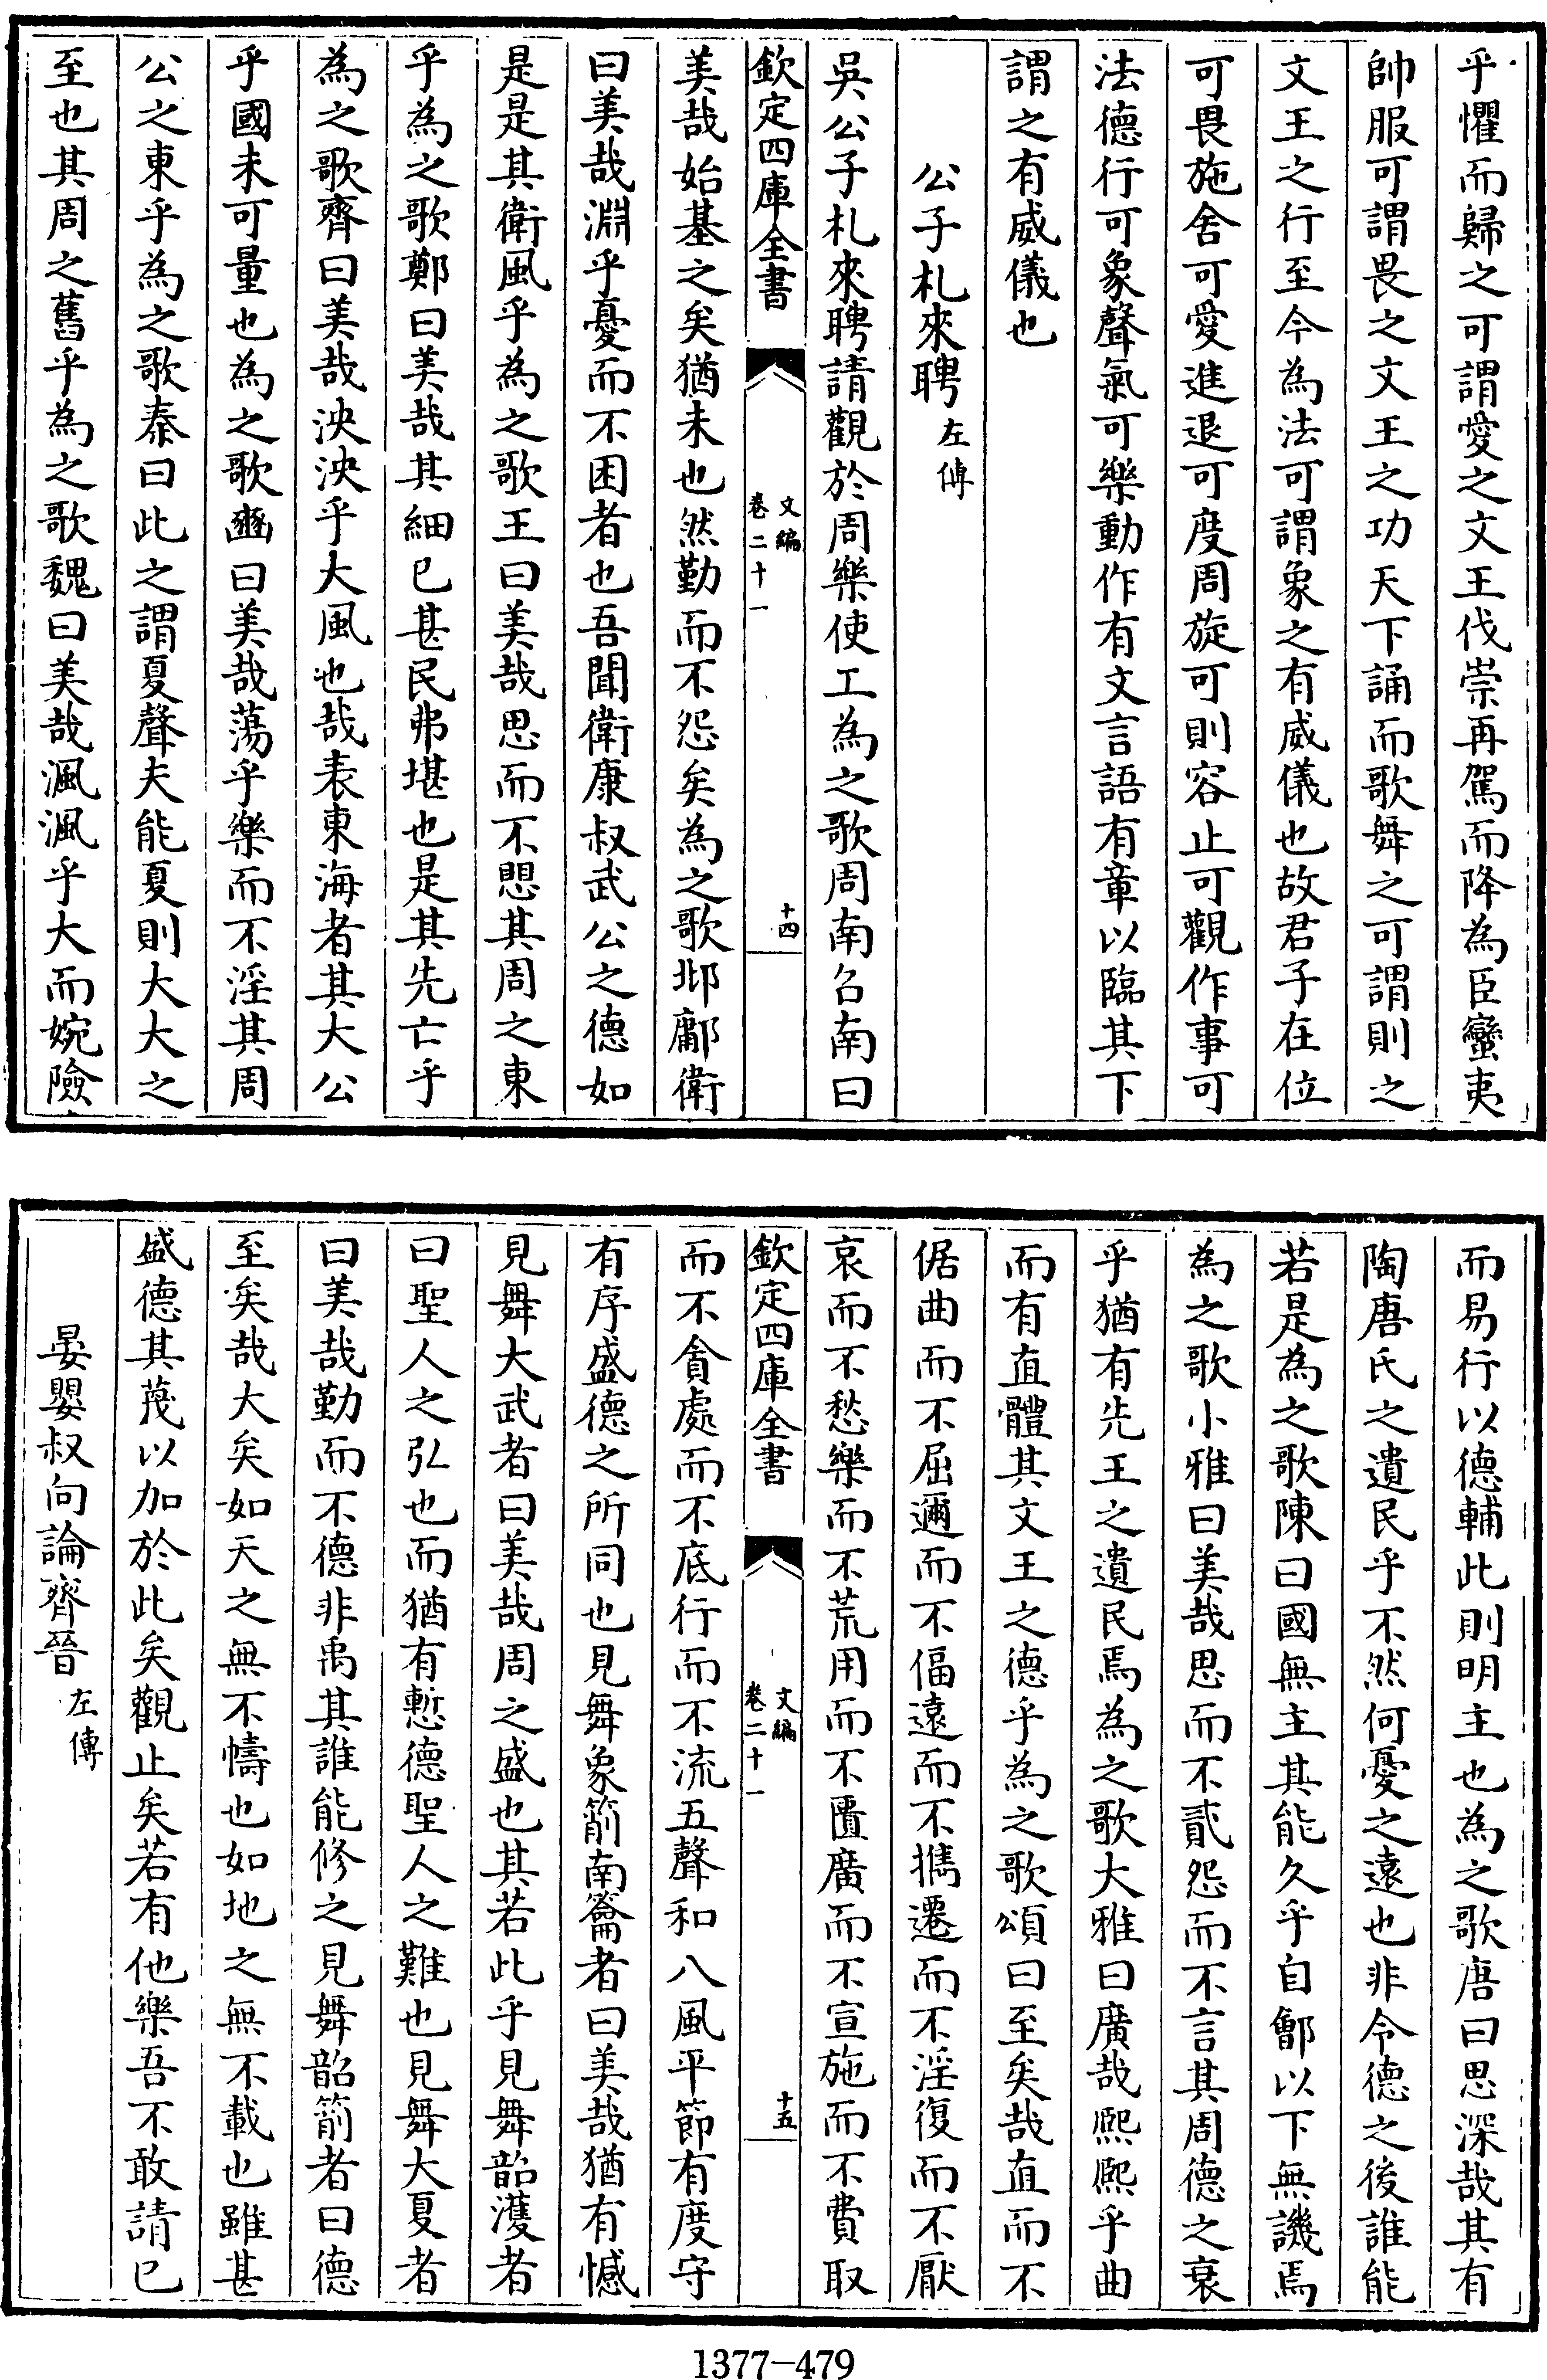 乎懼而歸之可謂愛之文王伐崇再駕而降為臣蠻夷
帥服可謂畏之文王之功天下誦而歌舞之可謂則之
文王之行至今為法可謂象之有威儀也故君子在位
可畏施舍可愛進退可度周旋可則容止可觀作事可
法德行可象聲氣可樂動作有文言語有章以臨其下
謂之有威儀也
公子札來聘左傳
吳公子札來聘請觀於周樂使工為之歌周南召南曰
欽定四庫全書
文編
卷二十一
十四
美哉始基之矣猶未也然勤而不怨矣為之歌邶鄘衛
曰美哉淵乎憂而不困者也吾聞衛康叔武公之德如
是是其衛風乎為之歌王曰美哉思而不愳其周之東
乎為之歌鄭曰美哉其細已甚民弗堪也是其先亡乎
為之歌齊曰美哉泱泱乎大風也哉表東海者其大公
乎國未可量也為之歌豳曰美哉蕩乎樂而不淫其周
公之東乎為之歌秦曰此之謂夏聲夫能夏則大大之
至也其周之舊乎為之歌魏曰美哉渢渢乎大而婉險
而易行以德輔此則明主也為之歌唐曰思深哉其有
陶唐氏之遺民乎不然何憂之遠也非令德之後誰能
若是為之歌陳曰國無主其能久乎自鄶以下無譏焉
為之歌小雅曰美哉思而不貳怨而不言其周德之衰
乎猶有先王之遺民焉為之歌大雅曰廣哉熙熙乎曲
而有直體其文王之德乎為之歌頌曰至矣哉直而不
倨曲而不屈邇而不偪遠而不攜遷而不淫復而不厭
哀而不愁樂而不荒用而不匱廣而不宣施而不費取
欽定四庫全書
文編
卷二十一
十五
而不貪處而不底行而不流五聲和八風平節有度守
有序盛德之所同也見舞象箾南籥者曰美哉猶有憾
見舞大武者曰美哉周之盛也其若此乎見舞韶濩者
曰聖人之弘也而猶有慙德聖人之難也見舞大夏者
曰美哉勤而不德非禹其誰能修之見舞韶箾者曰德
至矣哉大矣如天之無不幬也如地之無不載也雖甚
盛德其蔑以加於此矣觀止矣若有他樂吾不敢請已
晏嬰叔向論齊晉左傳
1377-479